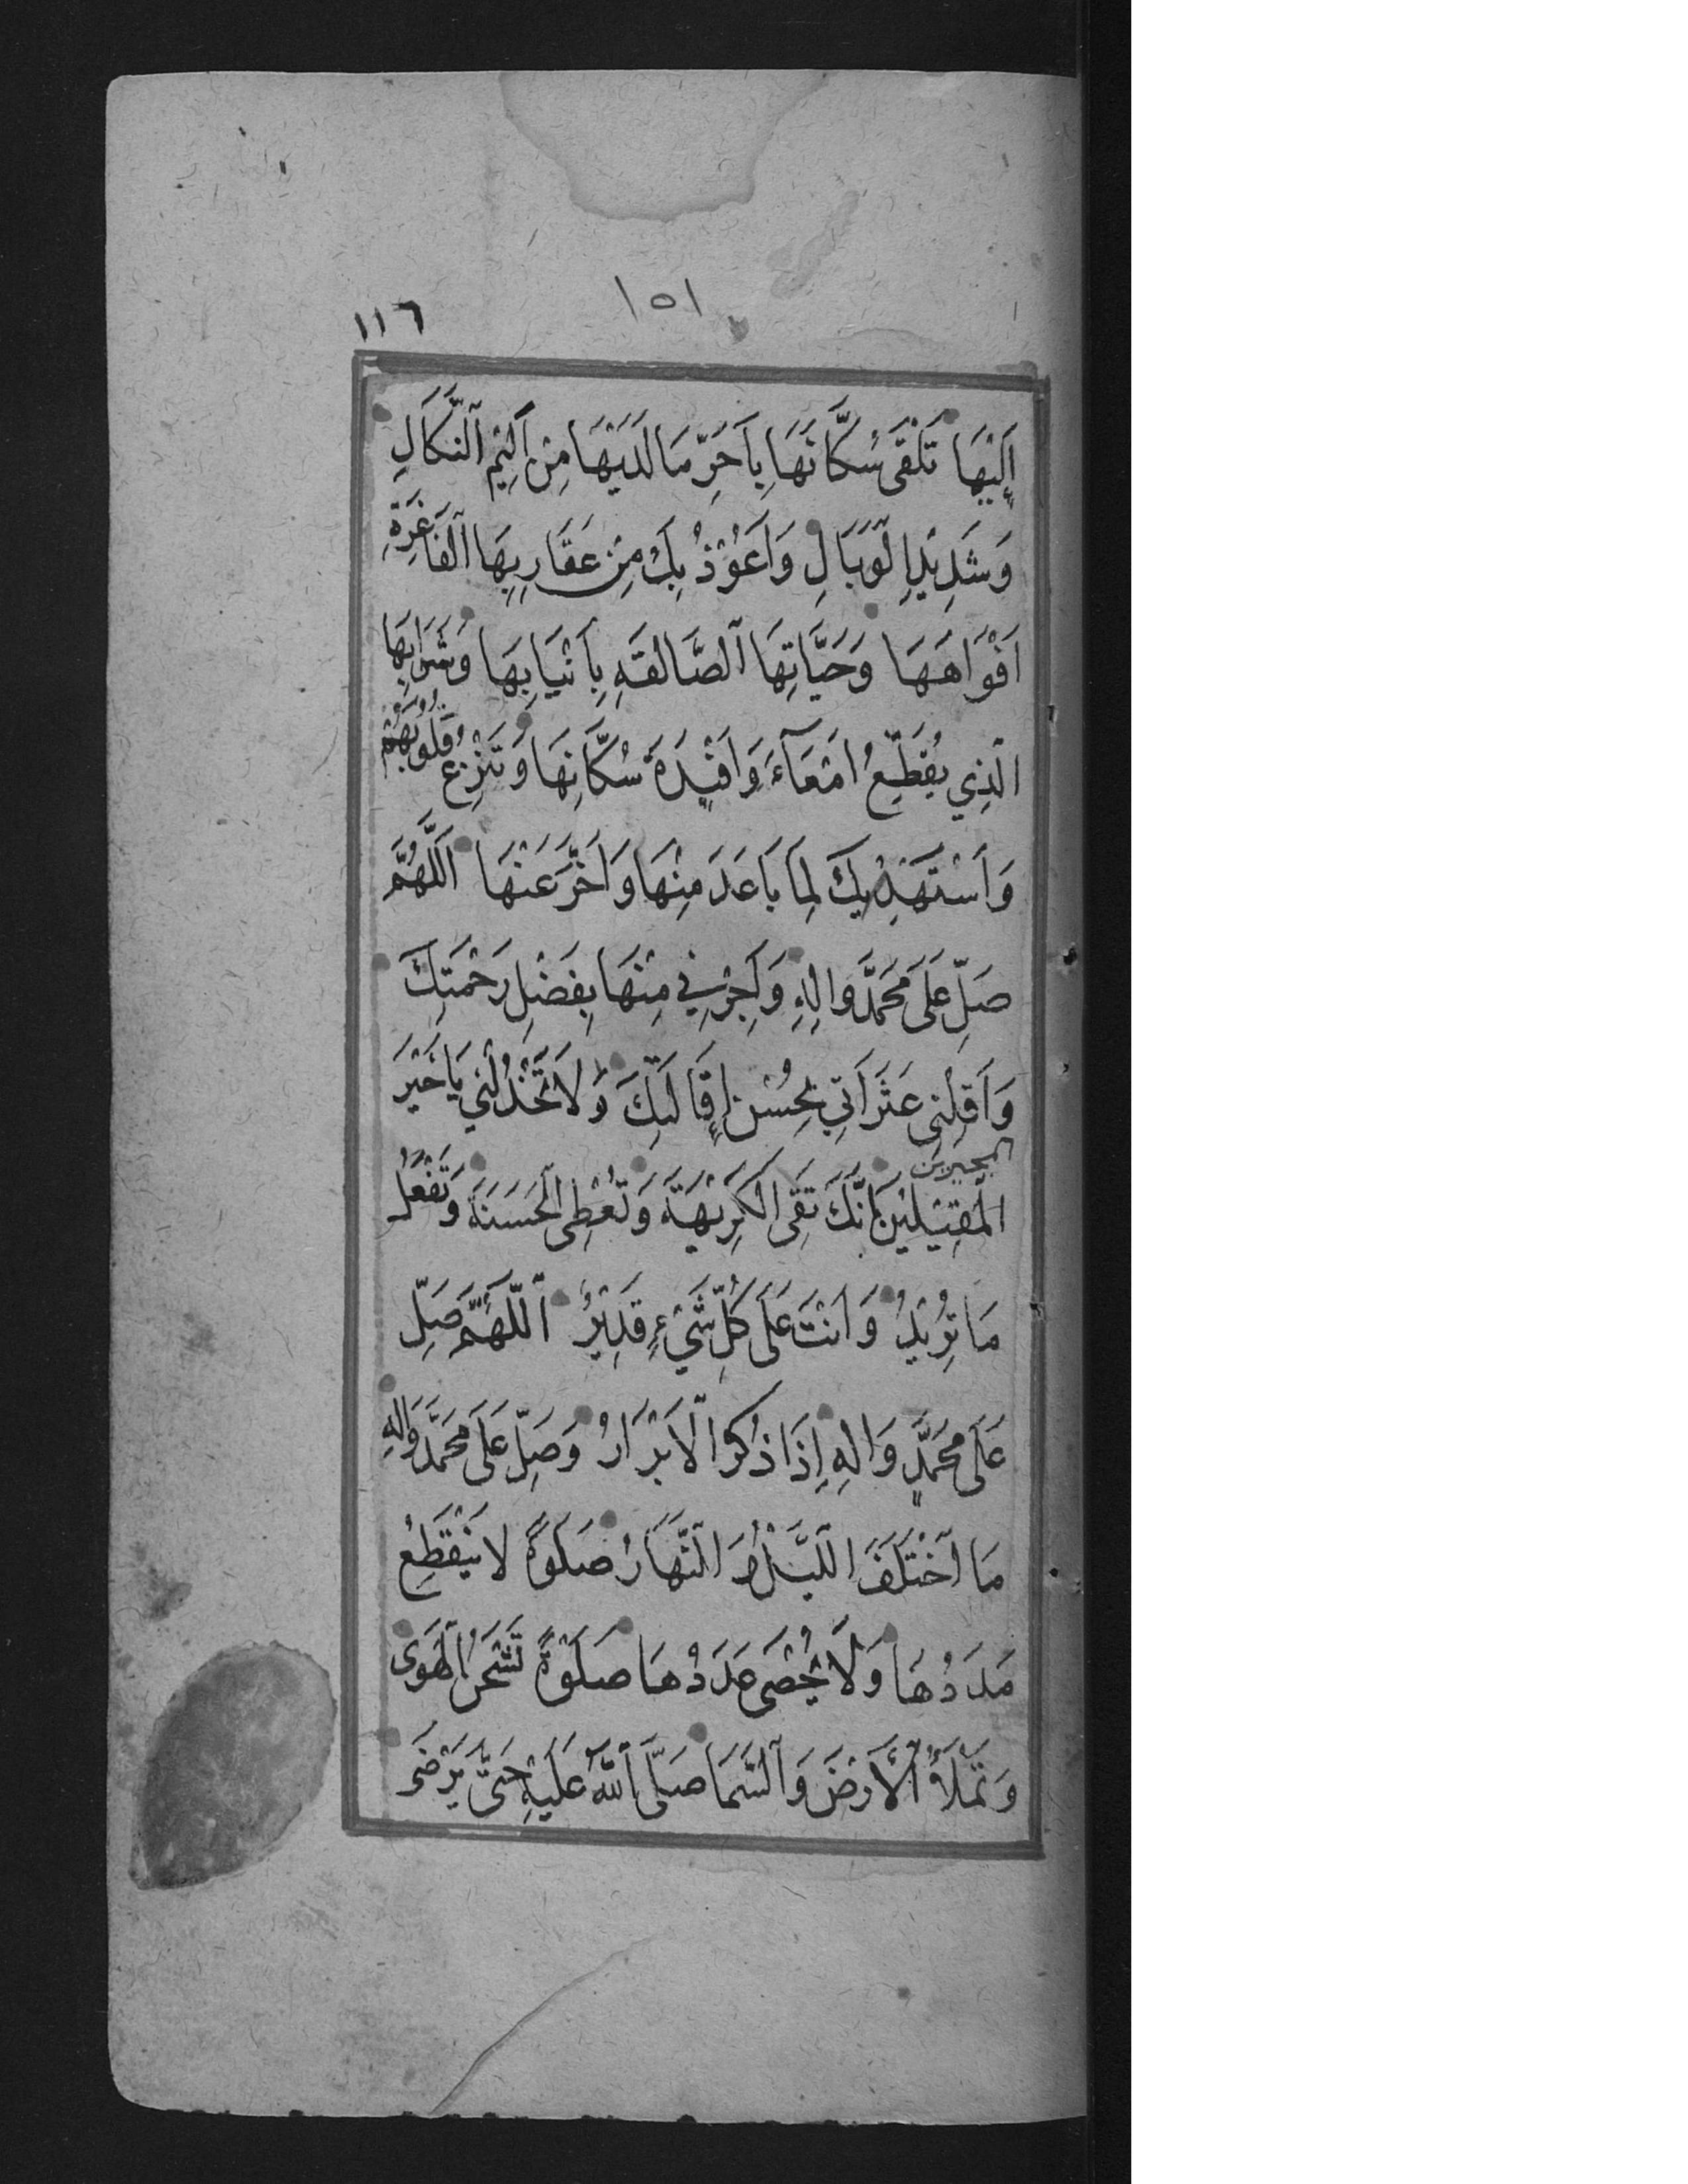 ١٥١
١١٦
إِلَيْهَا تَلْقَى سُكَّانَهَا بِأَحَرِّ مَا لَدَيْهَا مِنْ أَلِيْمِ ٱلنَّكَالِ
وَشَدِيْدِ الْوَبَالِ وَأَعُوْذُ بِكَ مِنْ عَقَارِبِهَا ٱلْفَاغِرَةِ
أَفْوَاهَهَا وَحَيَّاتِهَا ٱلصَّالِقَةِ بِأَنْيَابِهَا وَشَرَابِهَا
الَّذِي يُقَطِّعُ أَمْعَآءَ وَأَفْئِدَةَ سُكَّانِهَا وَتَنْزِعُ قُلُوبَهُمْ
وَأَسْتَهْدِيْكَ لِمَا بَاعَدَ مِنْهَا وَأَخَّرَ عَنْهَا اَللَّهُمَّ
صَلِّ عَلَى مُحَمَّدٍ وَالِهِ وَأَجِرْنِي مِنْهَا بِفَضْلِ رَحْمَتِكَ
وَأَقِلْنِي عَثَرَاتِي بِحُسْنِ إِقَالَتِكَ وَلَا تَخْذُلْنِي يَا خَيْرَ
المجيرين
الْمُقِيْلِيْنَ إِنَّكَ تَقِي الْكَرِيْهَةَ وَتُعْطِي الْحَسَنَةَ وَتَفْعَلُ
مَا تُرِيْدُ وَأَنْتَ عَلَى كُلِّ شَيْءٍ قَدِيْرٌ اَللَّهُمَّ صَلِّ
عَلَى مُحَمَّدٍ وَالِهِ إِذَا ذُكِرَ الْأَبْرَارُ وَصَلِّ عَلَى مُحَمَّدٍ وَالِهِ
مَا ٱخْتَلَفَ اللَّيْلُ وَ النَّهَارُ صَلٰوةً لَا يَنْقَطِعُ
مَدَدُهَا وَلَا يُحْصَى عَدَدُهَا صَلٰوةً تَشْحَنُ الْهَوَى
وَتَمْلَأُ الْأَرْضَ وَٱلسَّمَا صَلَّى ٱللّٰهُ عَلَيْهِ حَتَّى يَرْضَى